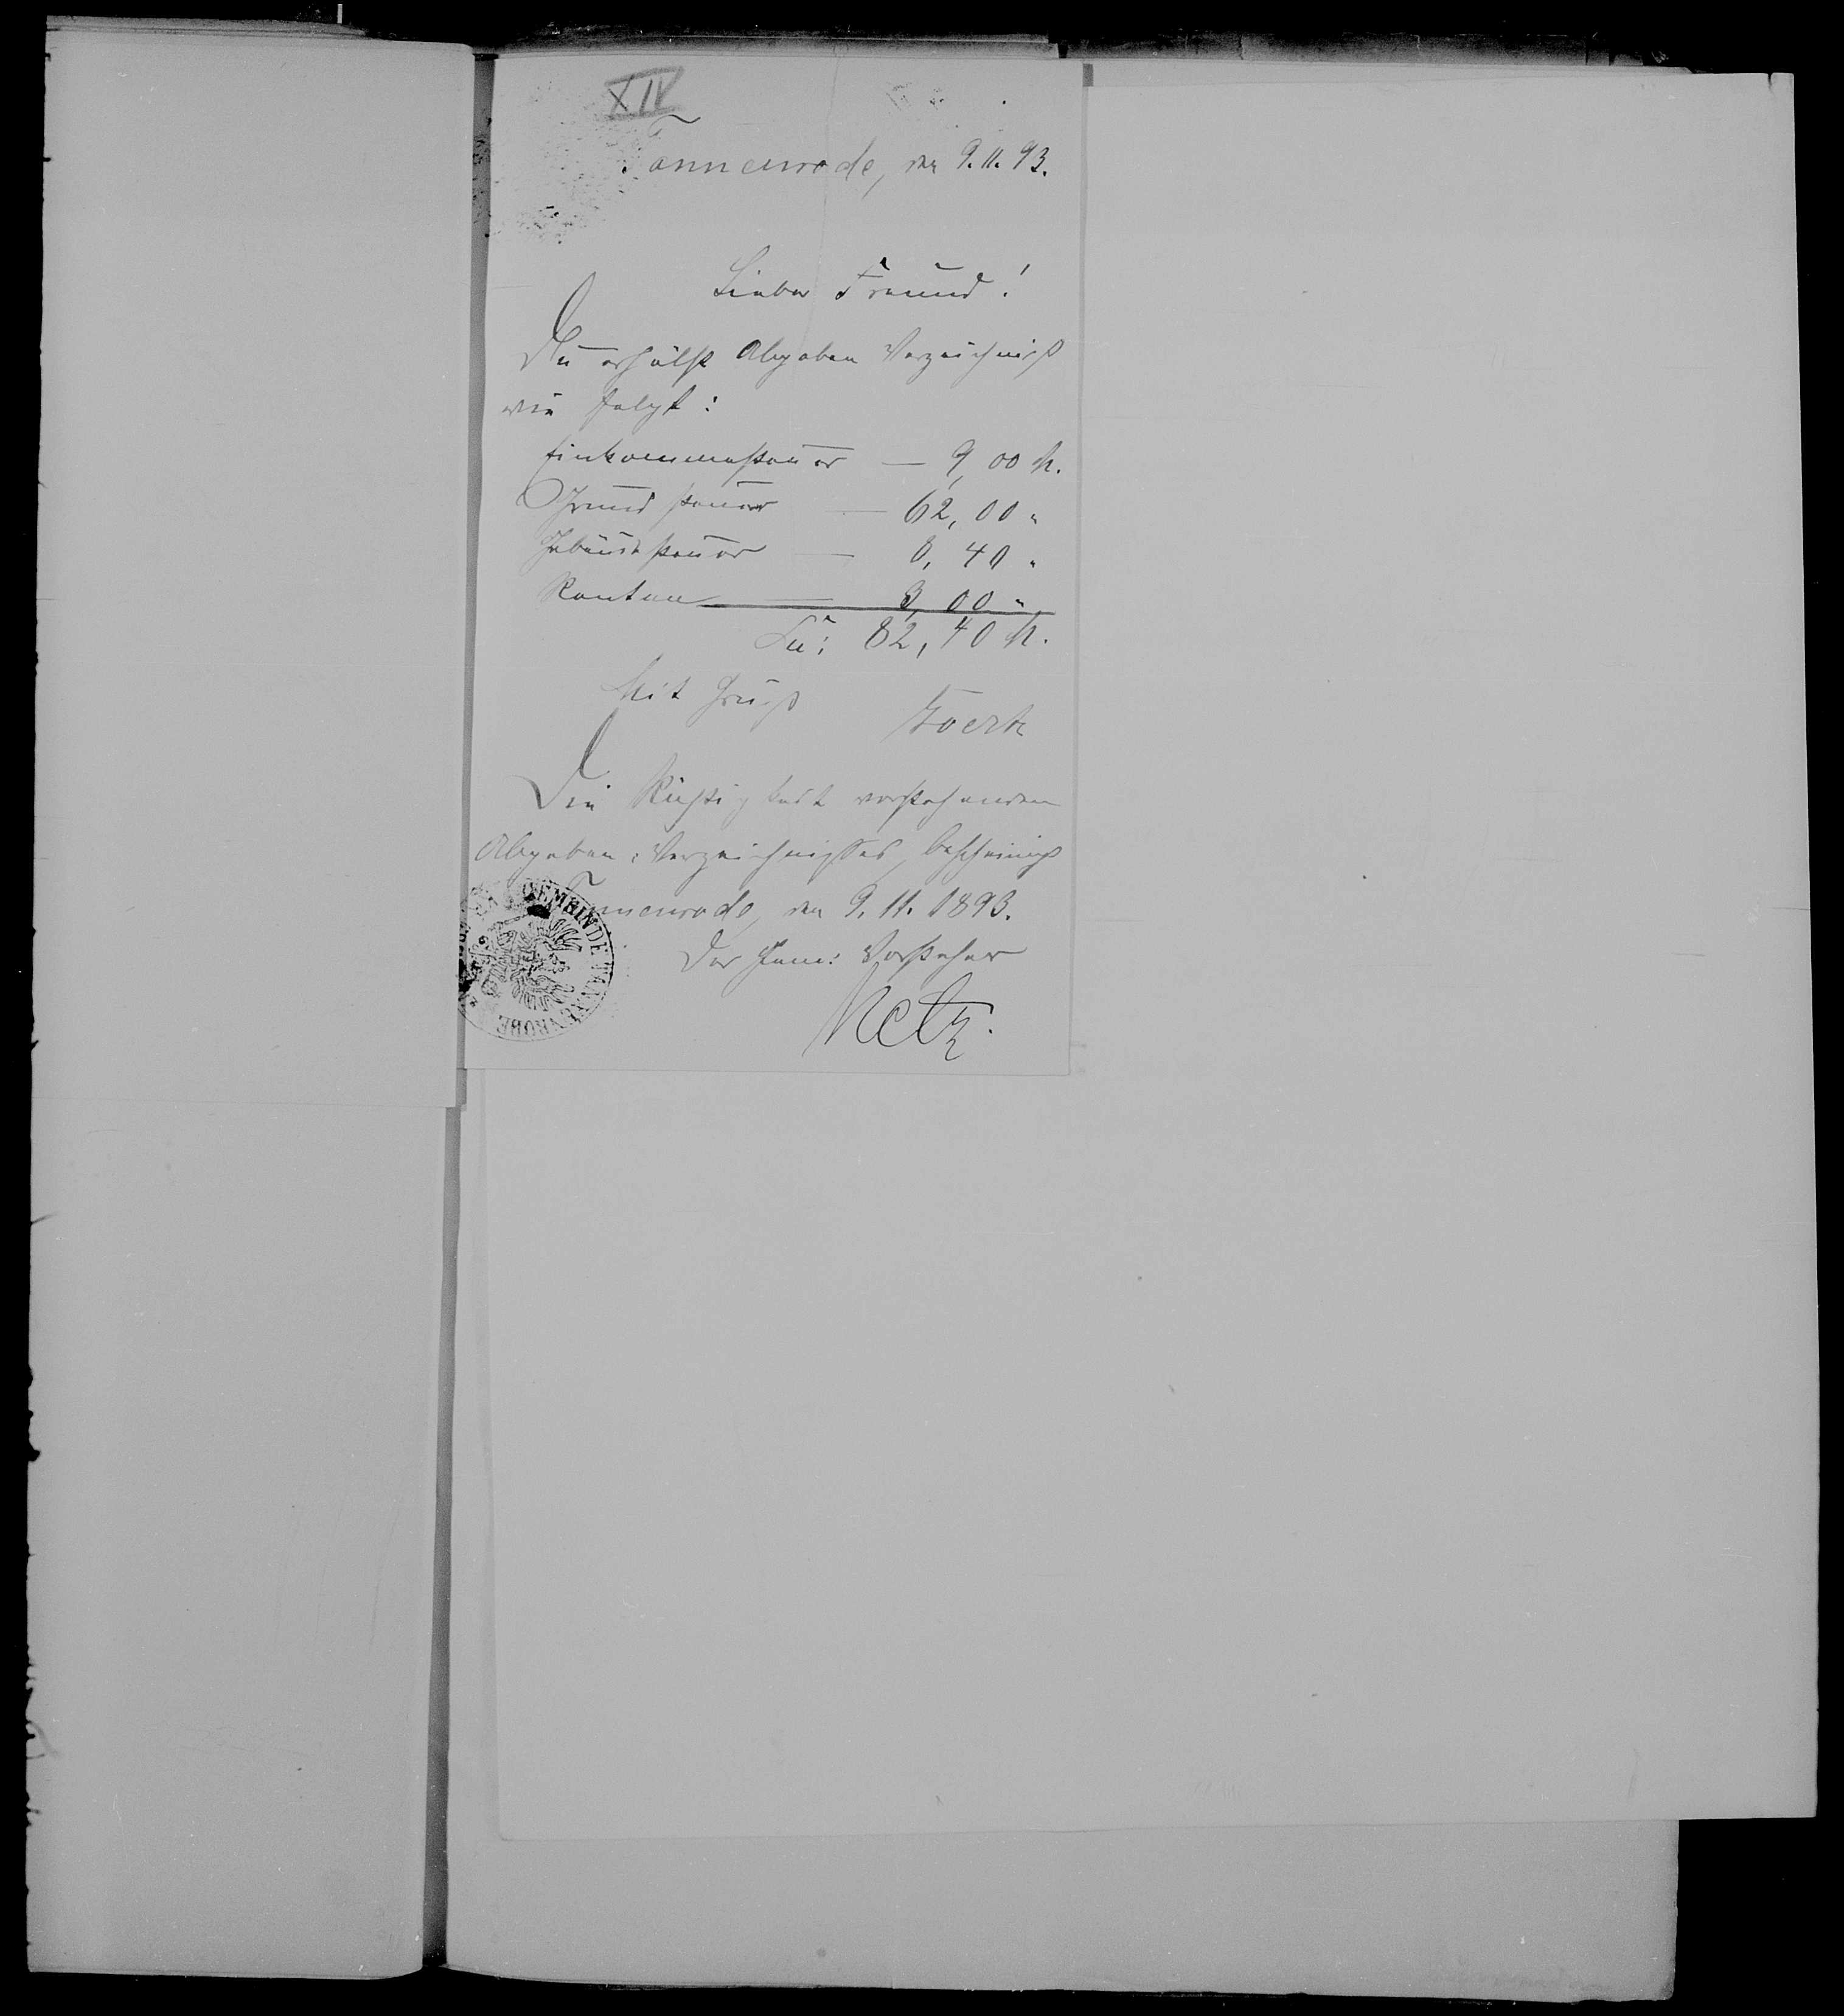 XIV
Tannenrode, den 9.11.93.
Lieber Freund!
Du erhälst Abgaben Verzeichniß
wie folgt:
Einkommensteuer — 9,00 M.
Grundsteuer — 62,00 "
Gebäudesteuer — 8,40 "
Renten — 3,00 "
Su: 82,40 M.
Mit Gruß
Die Richtigkeit vorstehenden
Abgaben-Verzeichnisses, bescheinigt
Tannenrode, den 9.11.1893.
Der Gem: Vorsteher
Netz.
GEMEINDE TANNENRODE